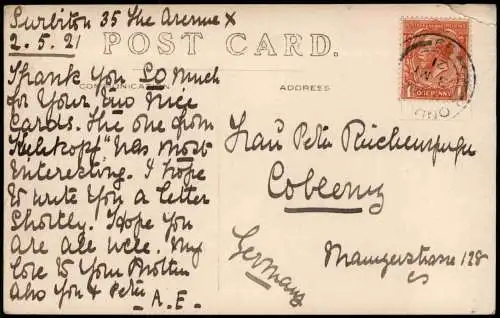 Surbiton 35 The Avenue X
2.5.21
POST CARD.
COMMUNICATION
ADDRESS
Thank You SO Much
for Your two Nice
Cards. The one from
"Kühkopf" was most
interesting. I hope
to write You a letter
Shortly. Hope You
are all well. My
love to Your Mother
also You & Peter
A.E.
Frau Peter Reichensperger
Coblenz
Mainzerstrasse 128
Germany
ONE PENNY